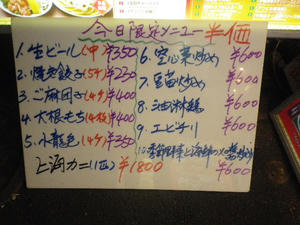 今日限定メニュー半価
1. 生ビール(中)¥350
2. 焼き餃子(5ケ)¥250
3. ごま団子(4ケ)¥400
4. 大根もち(4枚)¥400
5. 小龍包(4ケ)¥350
上海カニ(1匹)¥1800
6. 空心菜炒め ¥600
7. 豆苗炒め ¥600
8. 油淋鶏 ¥600
9. エビチリ ¥600
10. 季節野菜と海鮮の
¥600